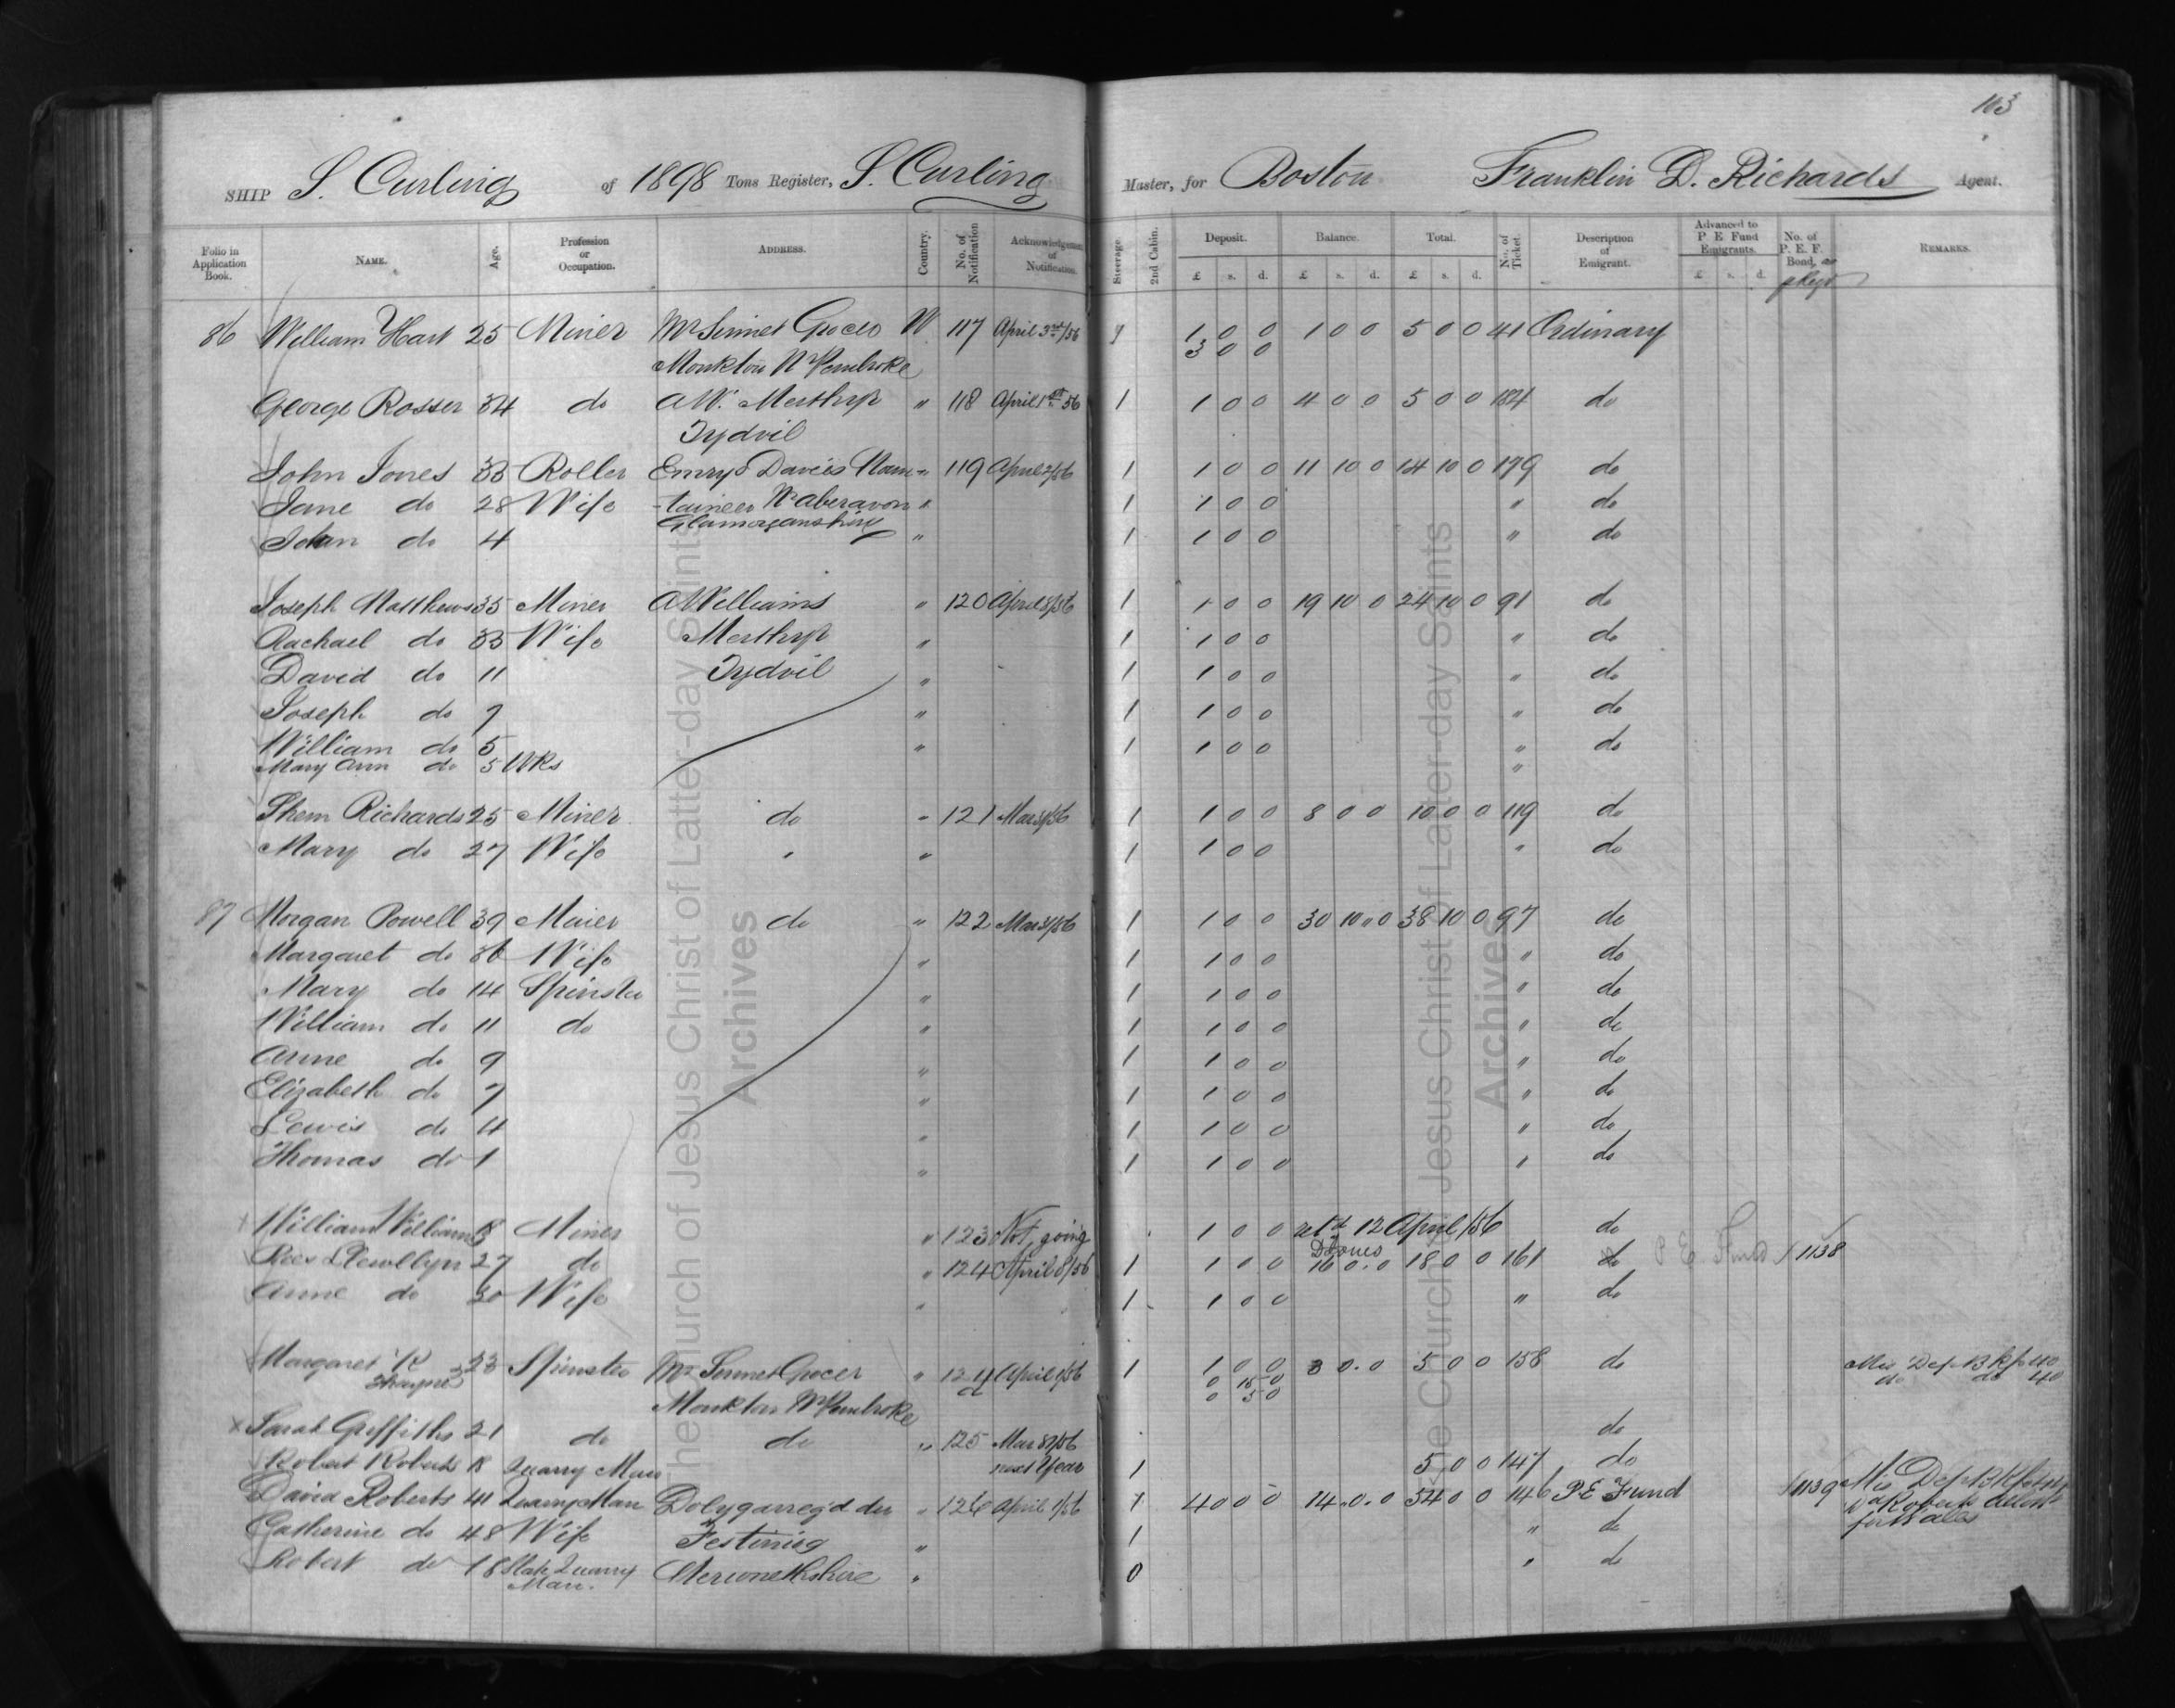 103
SHIP S. Curling of 1898 Tons Register, S. Curling Master, for Boston Franklin D. Richards Agent.
Folio in Application Book. NAME. Age. Profession or Occupation. ADDRESS. Country. No. of Notification Acknowledgement of Notification. Steerage. 2nd Cabin. Deposit. £ s. d. Balance. £ s. d. Total. £ s. d. No. of Ticket. Description of Emigrant. Advanced to P E Fund Emigrants. £ s. d. No. of P. E. F. Bond. REMARKS.
86 William Hart 25 Miner Mr Sinnet Grocer W 117 April 3rd/56 1 0 0 1 0 0 5 0 0 41 Ordinary
Monkton Nr Pembroke 3 0 0
George Rosser 34 do A W. Merthyr " 118 April 1st 56 1 1 0 0 4 0 0 5 0 0 184 do
Tydvil
John Jones 33 Roller Emrys Davies Nan- " 119 April 2/56 1 1 0 0 11 10 0 14 10 0 179 do
Jane do 28 Wife -taineer Nr Aberavon " 1 1 0 0 " do
Glamorganshire
John do 4 " 1 1 0 0 " do
Joseph Matthews 35 Miner A Williams " 120 April 8/56 1 1 0 0 19 10 0 24 10 0 91 do
Rachael do 33 Wife Merthyr " 1 1 0 0 " do
David do 11 Tydvil " 1 1 0 0 " do
Joseph do 7 " 1 1 0 0 " do
William do 5 " 1 1 0 0 " do
Mary Ann do 5 Wks "
Shem Richards 25 Miner do " 121 Mar 31/56 1 1 0 0 8 0 0 10 0 0 119 do
Mary do 27 Wife " " 1 1 0 0 " do
87 Morgan Powell 39 Maier do " 122 Mar 31/56 1 1 0 0 30 10 " 0 38 10 0 97 do
Margaret do 36 Wife " 1 1 0 0 " do
Mary do 14 Spinster " 1 1 0 0 " do
William do 11 do " 1 1 0 0 " do
Anne do 9 " 1 1 0 0 " do
Elizabeth do 7 " 1 1 0 0 " do
Lewis do 4 " 1 1 0 0 " do
Thomas do 1 " 1 1 0 0 " do
William Williams 18 Miner " 123 Not going 1 0 0 retd 12 April/56 do
D Jones
Rees Llewllyn 27 do " 124 April 8/56 1 1 0 0 16 0 . 0 18 0 0 161 do P E Fund 1138
Anne do 30 Wife " 1 1 0 0 " do
Margaret R 23 Spinster Mr Sinnet Grocer " 124 April 1/56 1 1 0 0 3 0 . 0 5 0 0 158 do
Thayne a 0 15 0 do do 40
Monkton Nr Pembroke 0 5 0
x Sarah Griffiths 21 do do " 125 Mar 31/56 do
Robert Roberts 18 Quarry Man next Year 1 5 0 0 147 do
David Roberts 41 Quarry Man Dolygarreg'd du " 126 April 1/56 1 4 0 0 0 14 . 0 . 0 54 0 0 146 P E Fund 1139
Catherine do 48 Wife Festiniog " 1 " do for Wales
Robert do 18 Slate Quarry Man. Merionethshire " 0 " do
The Church of Jesus Christ of Latter-day Saints
Archives
The Church of Jesus Christ of Latter-day Saints
Archives